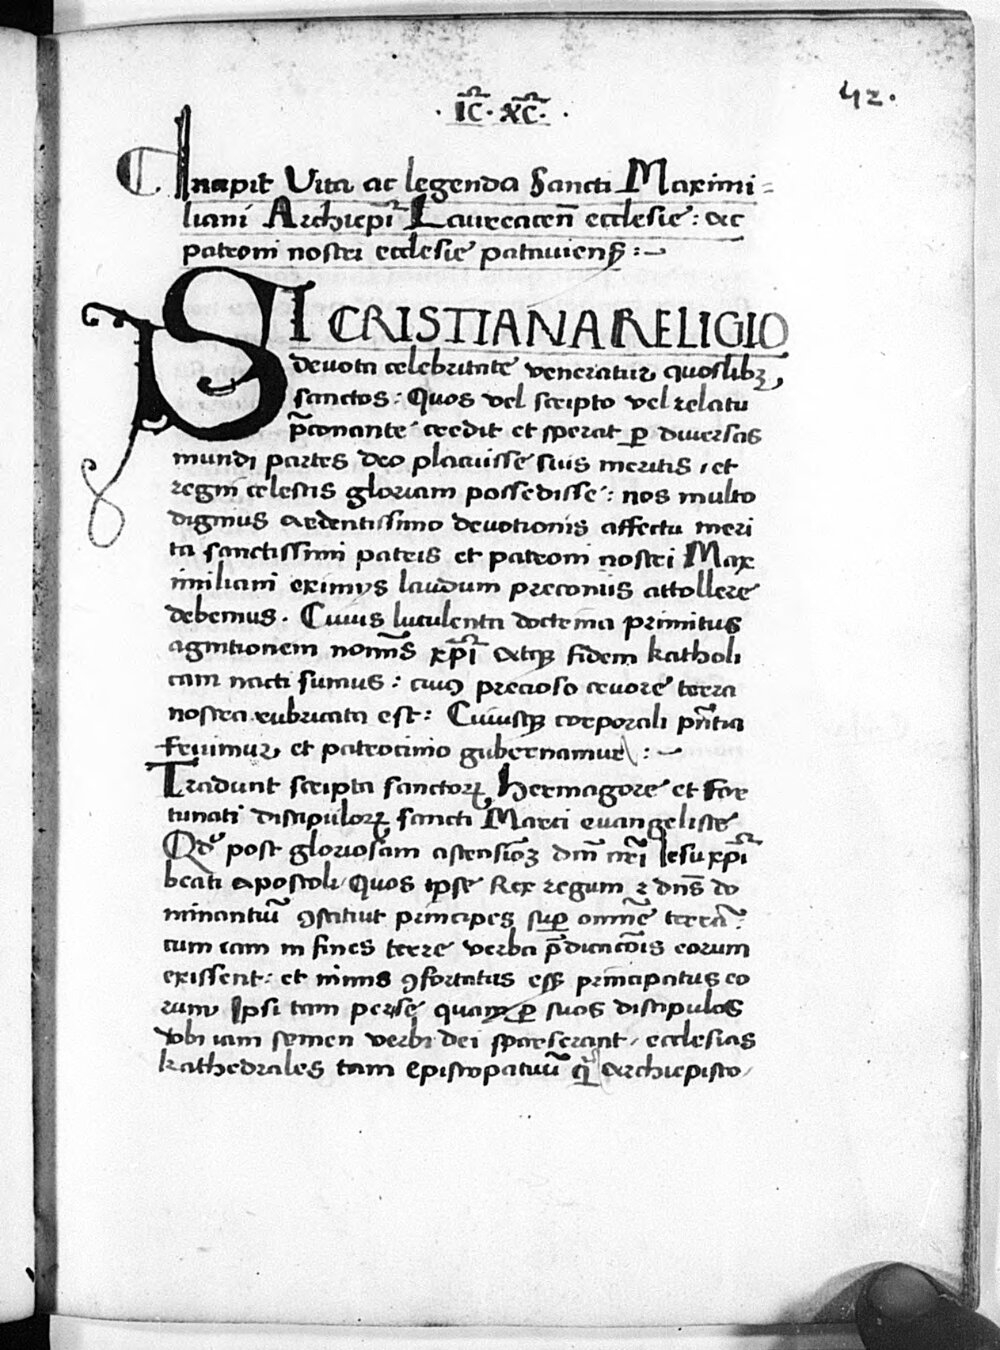 42.
· IC̅ · XC̅ · .
Incipit Vita ac legenda Sancti Maximi=
liani Archiepi̅ Laureacen̅ ecclesie : ac
patroni nostri ecclesie patauiens̅ :~
SI CRISTIANA RELIGIO
deuota celebritate veneratur quoslibꝫ,
sanctos : Quos vel scripto vel relatu
p̅conante credit et sperat ꝑ diuersas
mundi partes deo placuisse suis meritis, et
regni celestis gloriam possedisse : nos multo
dignius ardentissimo deuotionis affectu meri
ta sanctissimi patris et patroni nostri Max
imiliani eximys laudum preconiis attollere
debemus. Cuius luculenta doctrina primitus
agnitionem nomi̅s xp̅i atqꝫ fidem katholi
cam nacti sumus : cuiꝰ precioso cruore terra
nostra rubricata est : Cuiusqꝫ corporali pn̅tia
fruimur, et patrocinio gubernamur :~
Tradunt scripta sanctorꝝ Hermagore et For
tunati discipulorꝝ sancti Marci euangeliste
Qd' post gloriosam ascensio̅ꝫ dn̅i nr̅i Iesu xp̅i
beati apostoli, Quos ipse Rex regum ⁊ dn̅s do
minantiu̅ ꝯstituit principes suꝑ omne̅ terra̅ :
cum iam in fines terre verba p̅dicaco̅is eorum
exissent : et nimis ꝯfortatus ess̅ principatus eo
rum Ipsi tam per se quam ꝑ suos discipulos
vbi iam semen verbi dei sparserant, ecclesias
kathedrales tam episcopatuu̅ q̅ꝫ archiepisco,